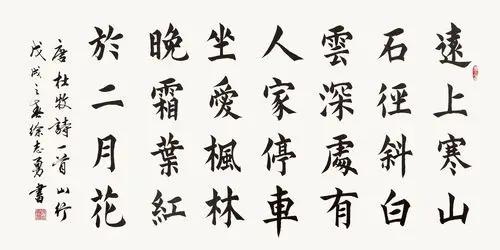 遠上寒山
石徑斜白
雲深處有
人家停車
坐愛楓林
晚霜葉紅
於二月花
唐杜牧詩一首山行
戊戌之徐志勇書